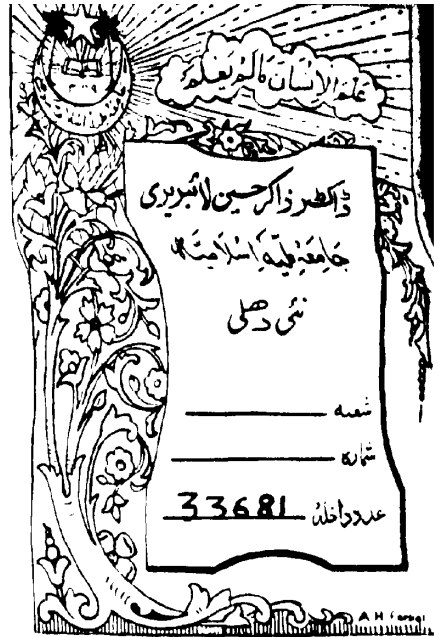 علم الانسان مالم يعلم
ڈاکٹر ذاکر حسین لائبریری
جامعہ ملیہ اسلامیہ
نئی دھلی
شعبہ
شمارہ
عدد داخلہ 33681
A H faruqi